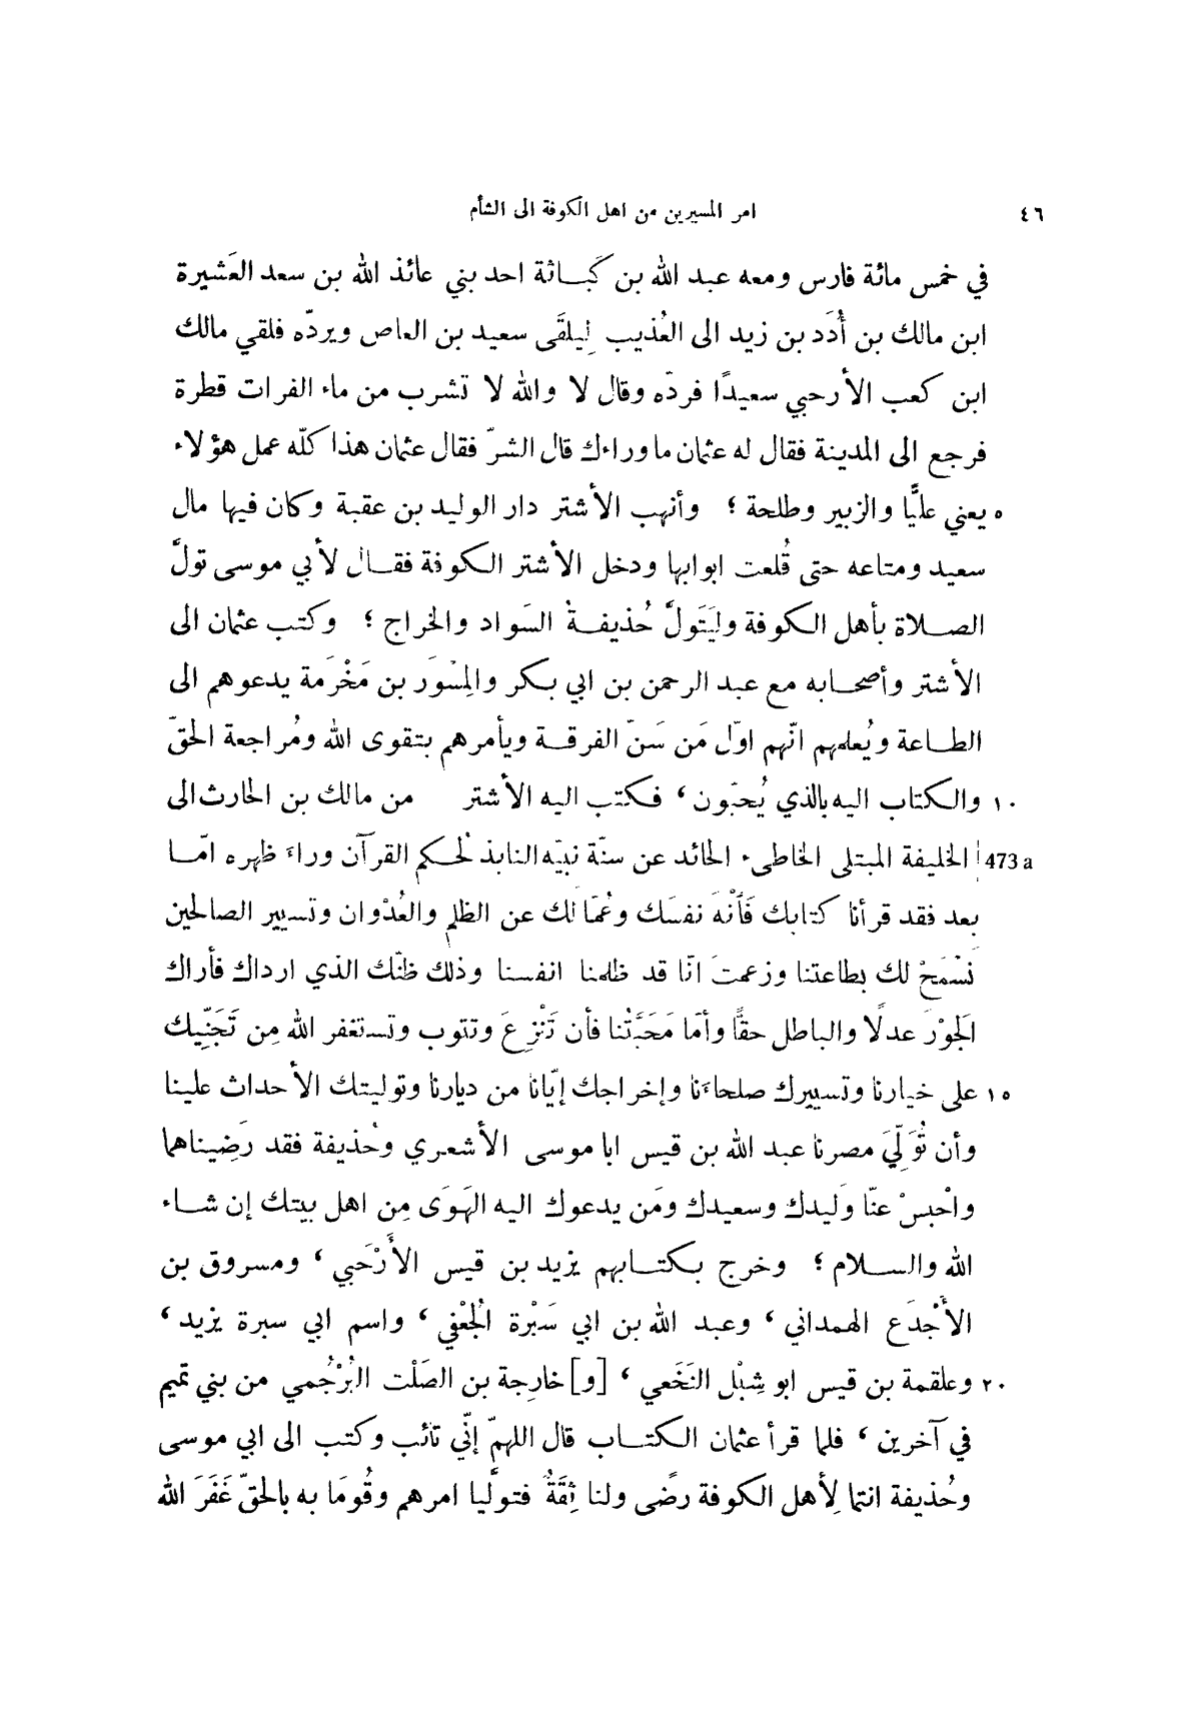 ٤٦ امر المسيرين من اهل الكوفة الى الشأم
في خمس مائة فارس ومعه عبد الله بن كَباثة احد بني عائذ الله بن سعد العَشيرة
ابن مالك بن أُدَد بن زيد الى العُذيب لِيلقَى سعيد بن العاص ويردّه فلقي مالك
ابن كعب الأرحبي سعيدًا فردّه وقال لا والله لا تشرب من ماء الفرات قطرة
فرجع الى المدينة فقال له عثمان ما وراءك قال الشرّ فقال عثمان هذا كلّه عمل هؤلاء
٥ يعني عليًّا والزبير وطلحة ؛ وأنهب الأشتر دار الوليد بن عقبة وكان فيها مال
سعيد ومتاعه حتى قُلعت ابوابها ودخل الأشتر الكوفة فقال لأبي موسى تولَّ
الصلاة بأهل الكوفة وليَتَولَّ حُذيفةُ السَواد والخراج ؛ وكتب عثمان الى
الأشتر وأصحابه مع عبد الرحمن بن ابي بكر والمِسْوَر بن مَخْرَمة يدعوهم الى
الطاعة ويُعلمهم انّهم اوّل مَن سَنّ الفرقة ويأمرهم بتقوى الله ومُراجعة الحقّ
١٠ والكتاب اليه بالذي يُحبّون ، فكتب اليه الأشتر من مالك بن الحارث الى
473a الخليفة المبتلى الخاطىء الحائد عن سنّة نبيّه النابذ لحكم القرآن وراءَ ظهره امّا
بعد فقد قرأنا كتابك فَأنْهَ نفسَك وعُمّالك عن الظلم والعُدْوان وتسيير الصالحين
نَسْمَحْ لك بطاعتنا وزعمتَ انّا قد ظلمنا انفسنا وذلك ظنّك الذي ارداك فأراك
الَجوْرَ عدلًا والباطل حقًّا وأمّا مَحَبَّتُنا فأن تَنْزِعَ وتتوب وتستغفر الله مِن تَجَنِّيك
١٥ على خيارنا وتسييرك صلحاءَنا وإخراجك إيّانا من ديارنا وتوليتك الأحداث علينا
وأن تُوَلِّيَ مصرنا عبد الله بن قيس ابا موسى الأشعري وحُذيفة فقد رَضِيناهما
واحْبِسْ عنّا وَليدك وسعيدك ومَن يدعوك اليه الهَوَى مِن اهل بيتك إن شاء
الله والسلام ؛ وخرج بكتابهم يزيد بن قيس الأَرْحَبي ، ومسروق بن
الأَجْدَع الهمداني ، وعبد الله بن ابي سَبْرة الُجعْفي ، واسم ابي سبرة يزيد ،
٢٠ وعلقمة بن قيس ابو شِبْل النَخَعي ، [و]خارِجة بن الصَلْت البُرْجُمي من بني تميم
في آخرين ، فلما قرأ عثمان الكتاب قال اللهمّ إنّي تائب وكتب الى ابي موسى
وحُذيفة انتما لِأهل الكوفة رضًى ولنا ثِقَةٌ فتولَّيا امرهم وقُومَا به بالحقّ غَفَرَ الله